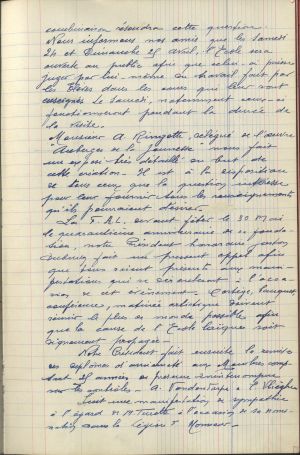 combinaison résoudra cette question.
Nous informons nos amis que les Samedi
24 et Dimanche 25 Avril, l'Ecole sera
ouverte au public afin que celui-ci puisse
juger par lui-même du travail fait par
les Elèves dans les cours qui leur sont
enseignés. Le Samedi, notamment ceux-ci
fonctionneront pendant la durée de
la visite.
Monsieur A Ringotte, délégué de l'œuvre
"Auberges de la Jeunesse" nous fait
un exposé très détaillé du but de
cette création. Il est à la disposition
de tous ceux que la question intéresse
pour leur fournir tous les renseignements
qu'ils pourraient désirer.
La F.A.L. devant fêter le 30 Mai
le quarantième anniversaire de sa fonda-
tion, notre Président honoraire
fait un pressant appel afin
que tous soient présents aux mani-
festations qui se dérouleront à l'occa-
sion de cet anniversaire. Cortège, banquet
conférence, matinée artistique doivent
réunir le plus de monde possible afin
que la cause de l'Ecole laïque soit
dignement propagée.
Notre Président fait ensuite la remise
des diplômes d'ancienneté aux Membres comp-
tant 25 années de présence ininterrompue
sur les contrôles. A.
Suit une manifestation de sympathie
à l'égard de M. à l'occasion de sa nomi-
nation dans la Légion d'Honneur.